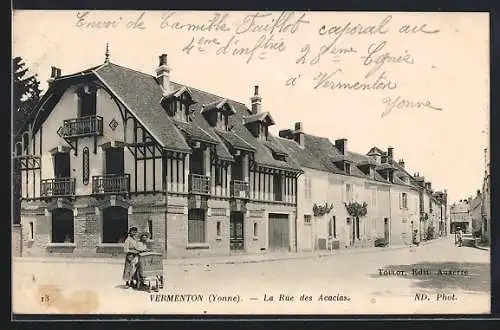 Envoi de Camille Taillot caporal au
4eme d'inftrie 28eme Cgnie
à Vermenton
Yonne
Toillot Edit. Auxerre
13
VERMENTON (Yonne). — La Rue des Acacias.
ND. Phot.